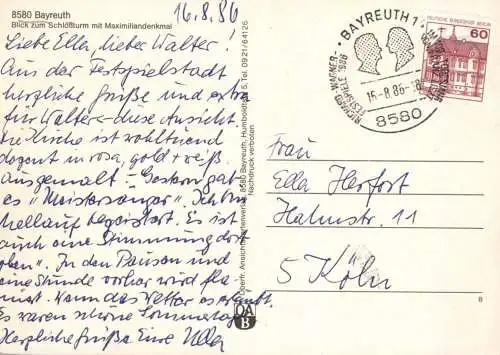 8580 Bayreuth
Blick zum Schloßturm mit Maximiliandenkmal
16.8.86
Liebe Ella, lieber Walter!
Aus der Festspielstadt
herzliche Grüße und extra
für Walter diese Ansicht.
Die Kirche ist wohltuend
dezent in rosa, gold + weiß
ausgemalt. Gestern gab
es "Meistersinger". Ich bin
hellauf begeistert. Es ist
auch eine Stimmung dort
oben". In den Pausen und
eine Stunde vorher wird fla-
niert. Wenn das Wetter es erlaubt.
Es waren schöne Sommertage
Herzliche Grüße Eure
Oberfr. Ansichtskartenverlag, 8580 Bayreuth, 5, Tel. 0921/64126
Nachdruck verboten
BAYREUTH 1
RICHARD-WAGNER-
FESTSPIELE 1986
8580
DEUTSCHE BUNDESPOST BERLIN
60
Frau
Ella Herfort
Halmstr. 11
5 Köln
OA
B
8